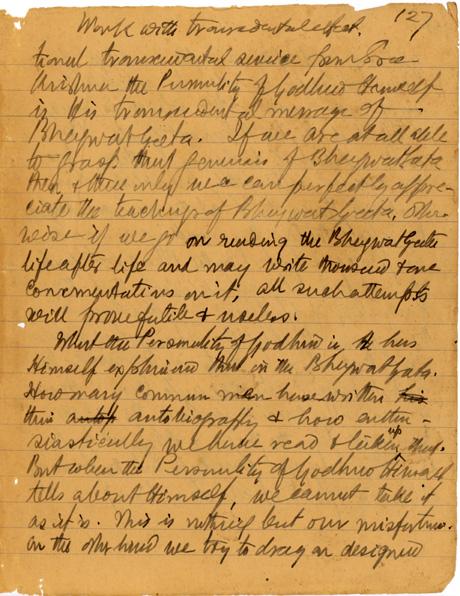 127
Work with transcendental effect.
tional transcendental service from Sree
Krishna the Personality of Godhead Himself
is His transcendental message of
Bhagwat Geeta. If we are at all able
to grasp that genesis of Bhagwat Geeta
then & then only we can perfectly appre-
ciate the teachings of Bhagwat Geeta. Other
wise if we go on reading the Bhagwat Geeta
life after life and may write thousand & one
commentations on it, all such attempts
will prove futile & useless.
What the Personality of Godhead is, He has
Himself explained that in the Bhagwat Geeta.
How many common men have written his
their autob autobiography & how enthu-
siastically we have read & taken up that.
But when the Personality of Godhead Himself
tells about Himself, we cannot take it
as it is. This is nothing but our misfortune.
On the other hand we try to drag an designed